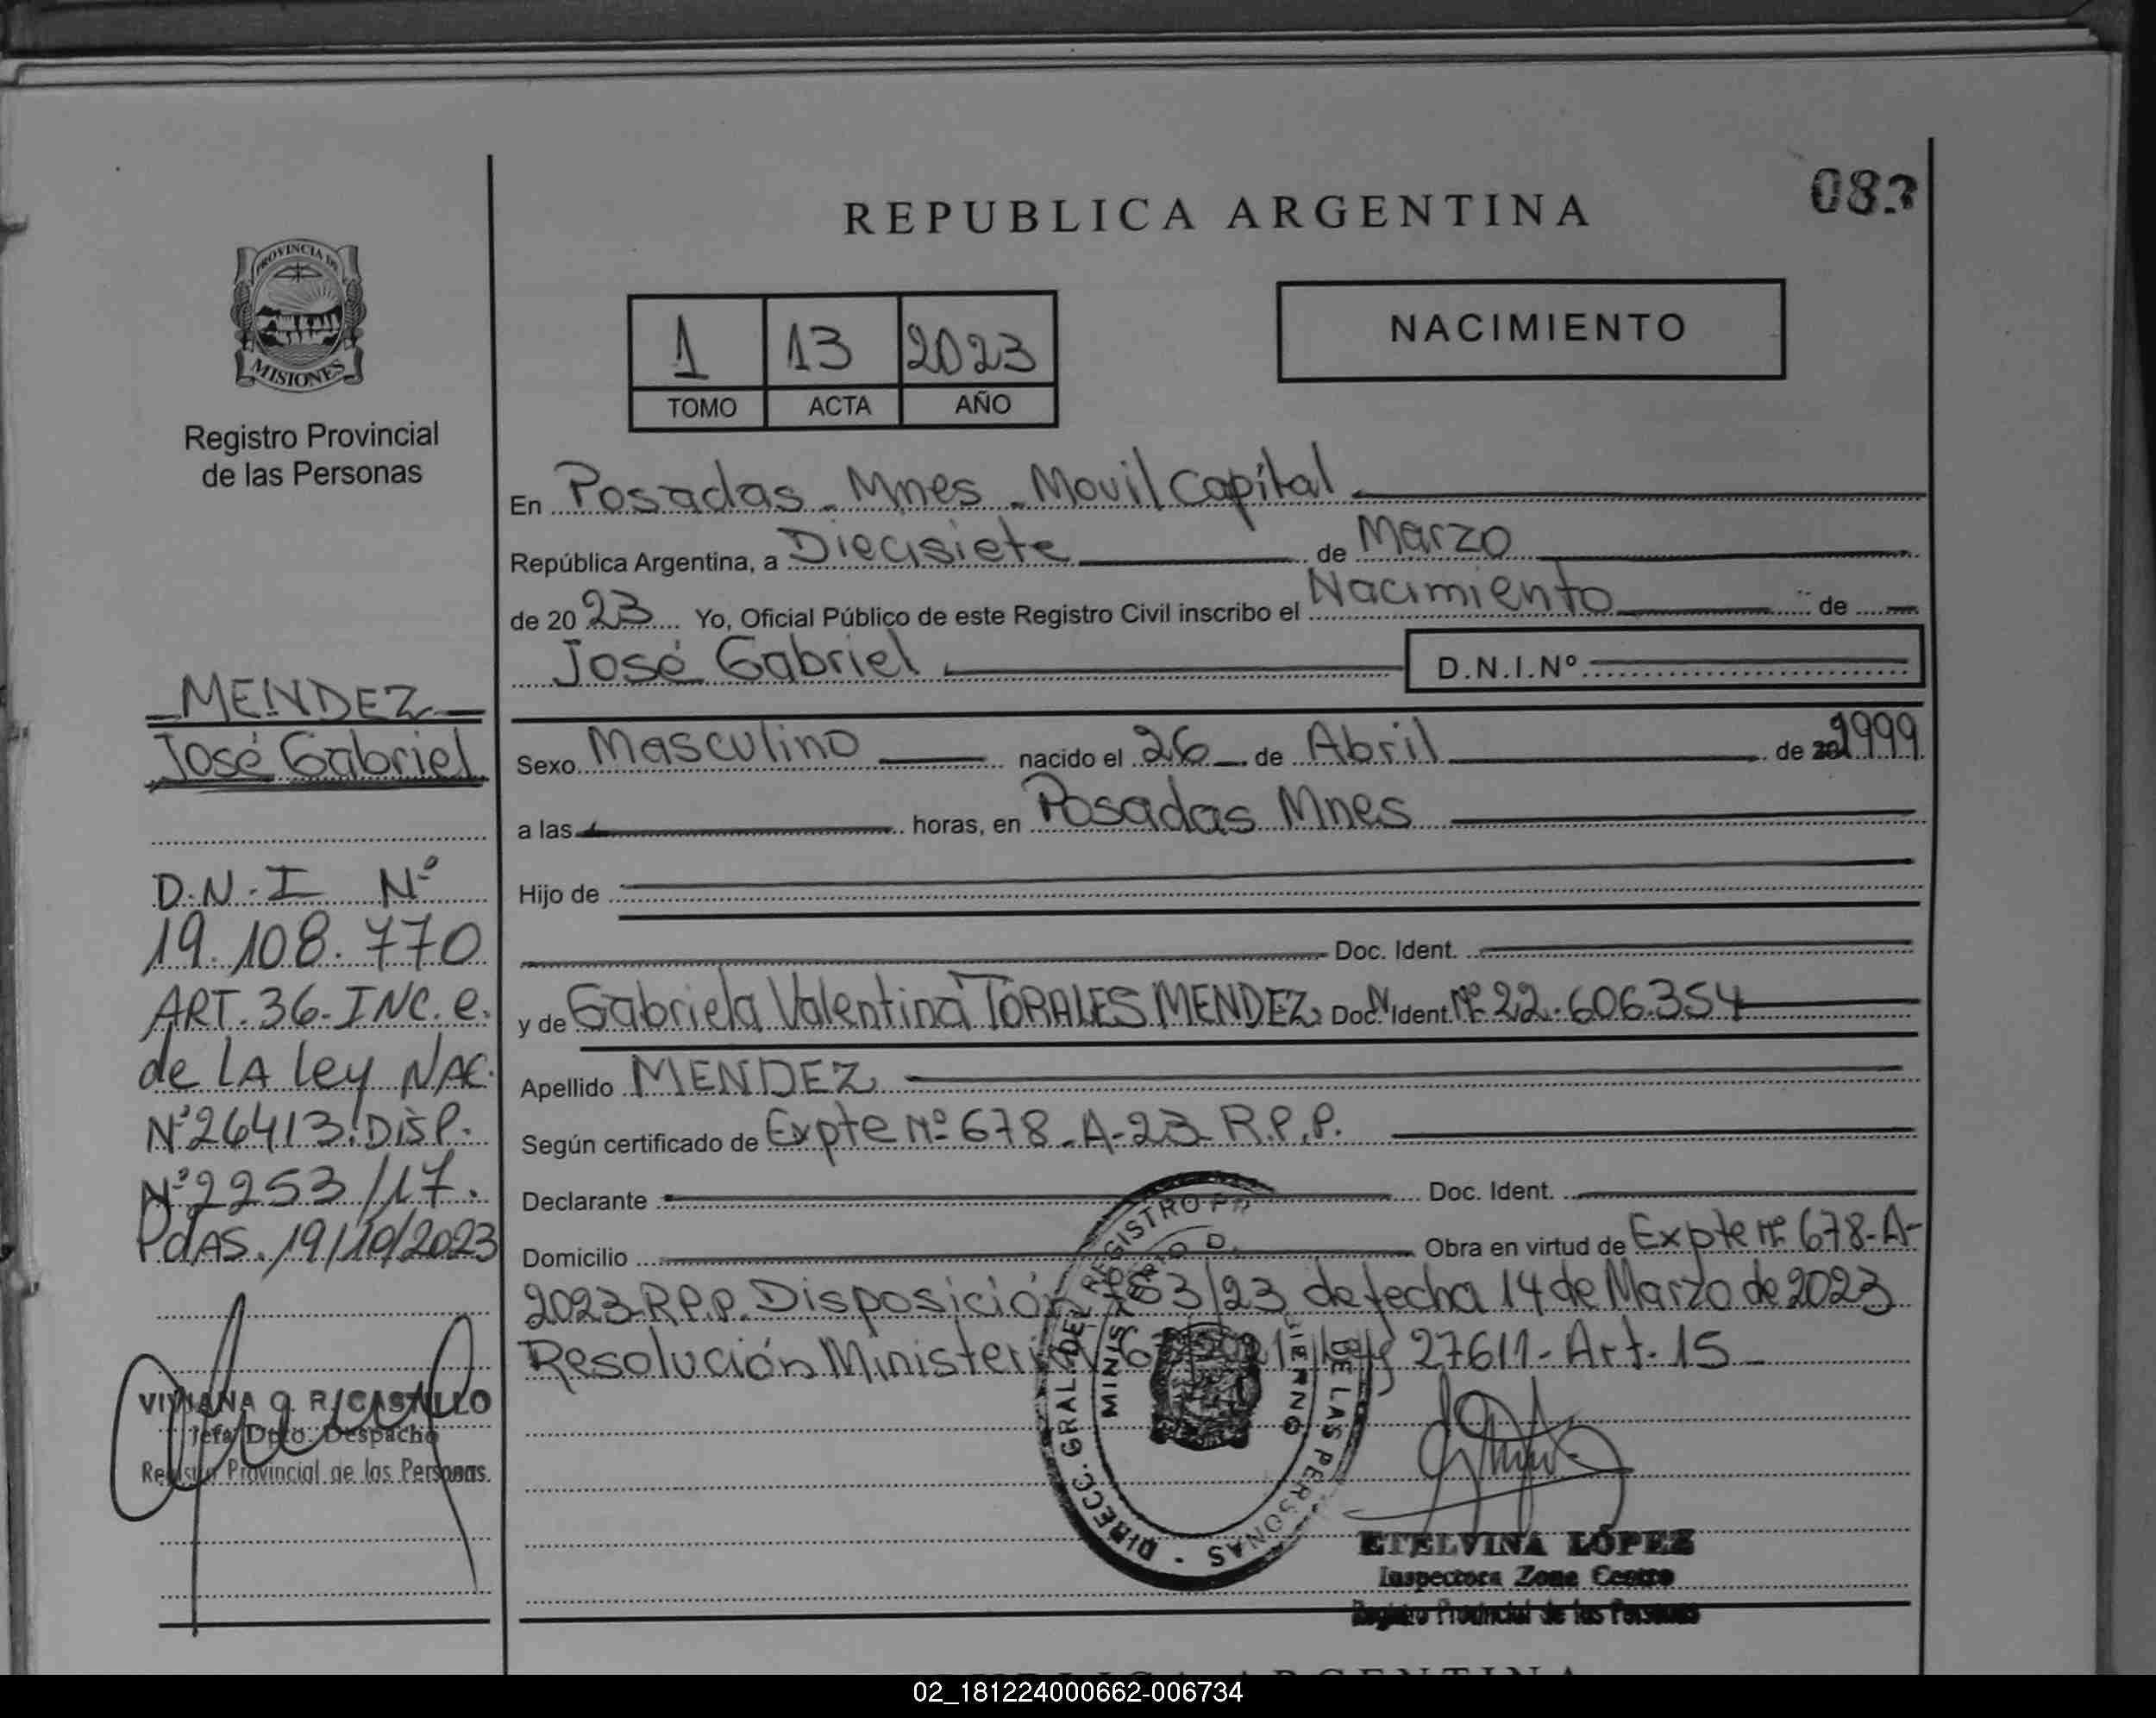 REPUBLICA ARGENTINA
PROVINCIA DE
MISIONES
Registro Provincial
de las Personas
MENDEZ
José Gabriel
D.N.I Nº
19.108.770
ART. 36. INC. e.
de LA Ley NAC.
Nº26413. DISP.
Nº2253/17.
PdAS. 19/10/2023
VIVIANA G. R. CASTILLO
Jefa Dpto. Despacho
Registro Provincial de las Personas
NACIMIENTO
1 13 2023
TOMO ACTA AÑO
En Posadas - Mnes - Movil Capital
República Argentina, a Diecisiete de Marzo
de 20 23 Yo, Oficial Público de este Registro Civil inscribo el Nacimiento de
José Gabriel D.N.I.Nº
Sexo Masculino nacido el 26 de Abril de 1999
a las horas, en Posadas Mnes
Hijo de
Doc. Ident.
y de Gabriela Valentina TORALES MENDEZ, Doc. Ident. Nº 22.606.354
Apellido MENDEZ
Según certificado de Expte Nº 678-A-23 R.P.P.
Declarante Doc. Ident.
Domicilio Obra en virtud de Expte nº 678-A-
2023-R.P.P. Disposición /23 de fecha 14 de Marzo de 2023
Resolución Ministerial Ley 27611 - Art. 15
DIRECC. GRAL. DEL REGISTRO DE LAS PERSONAS
ETELVINA LÓPEZ
Inspectora Zona Centro
Registro Provincial de las Personas
02_181224000662-006734